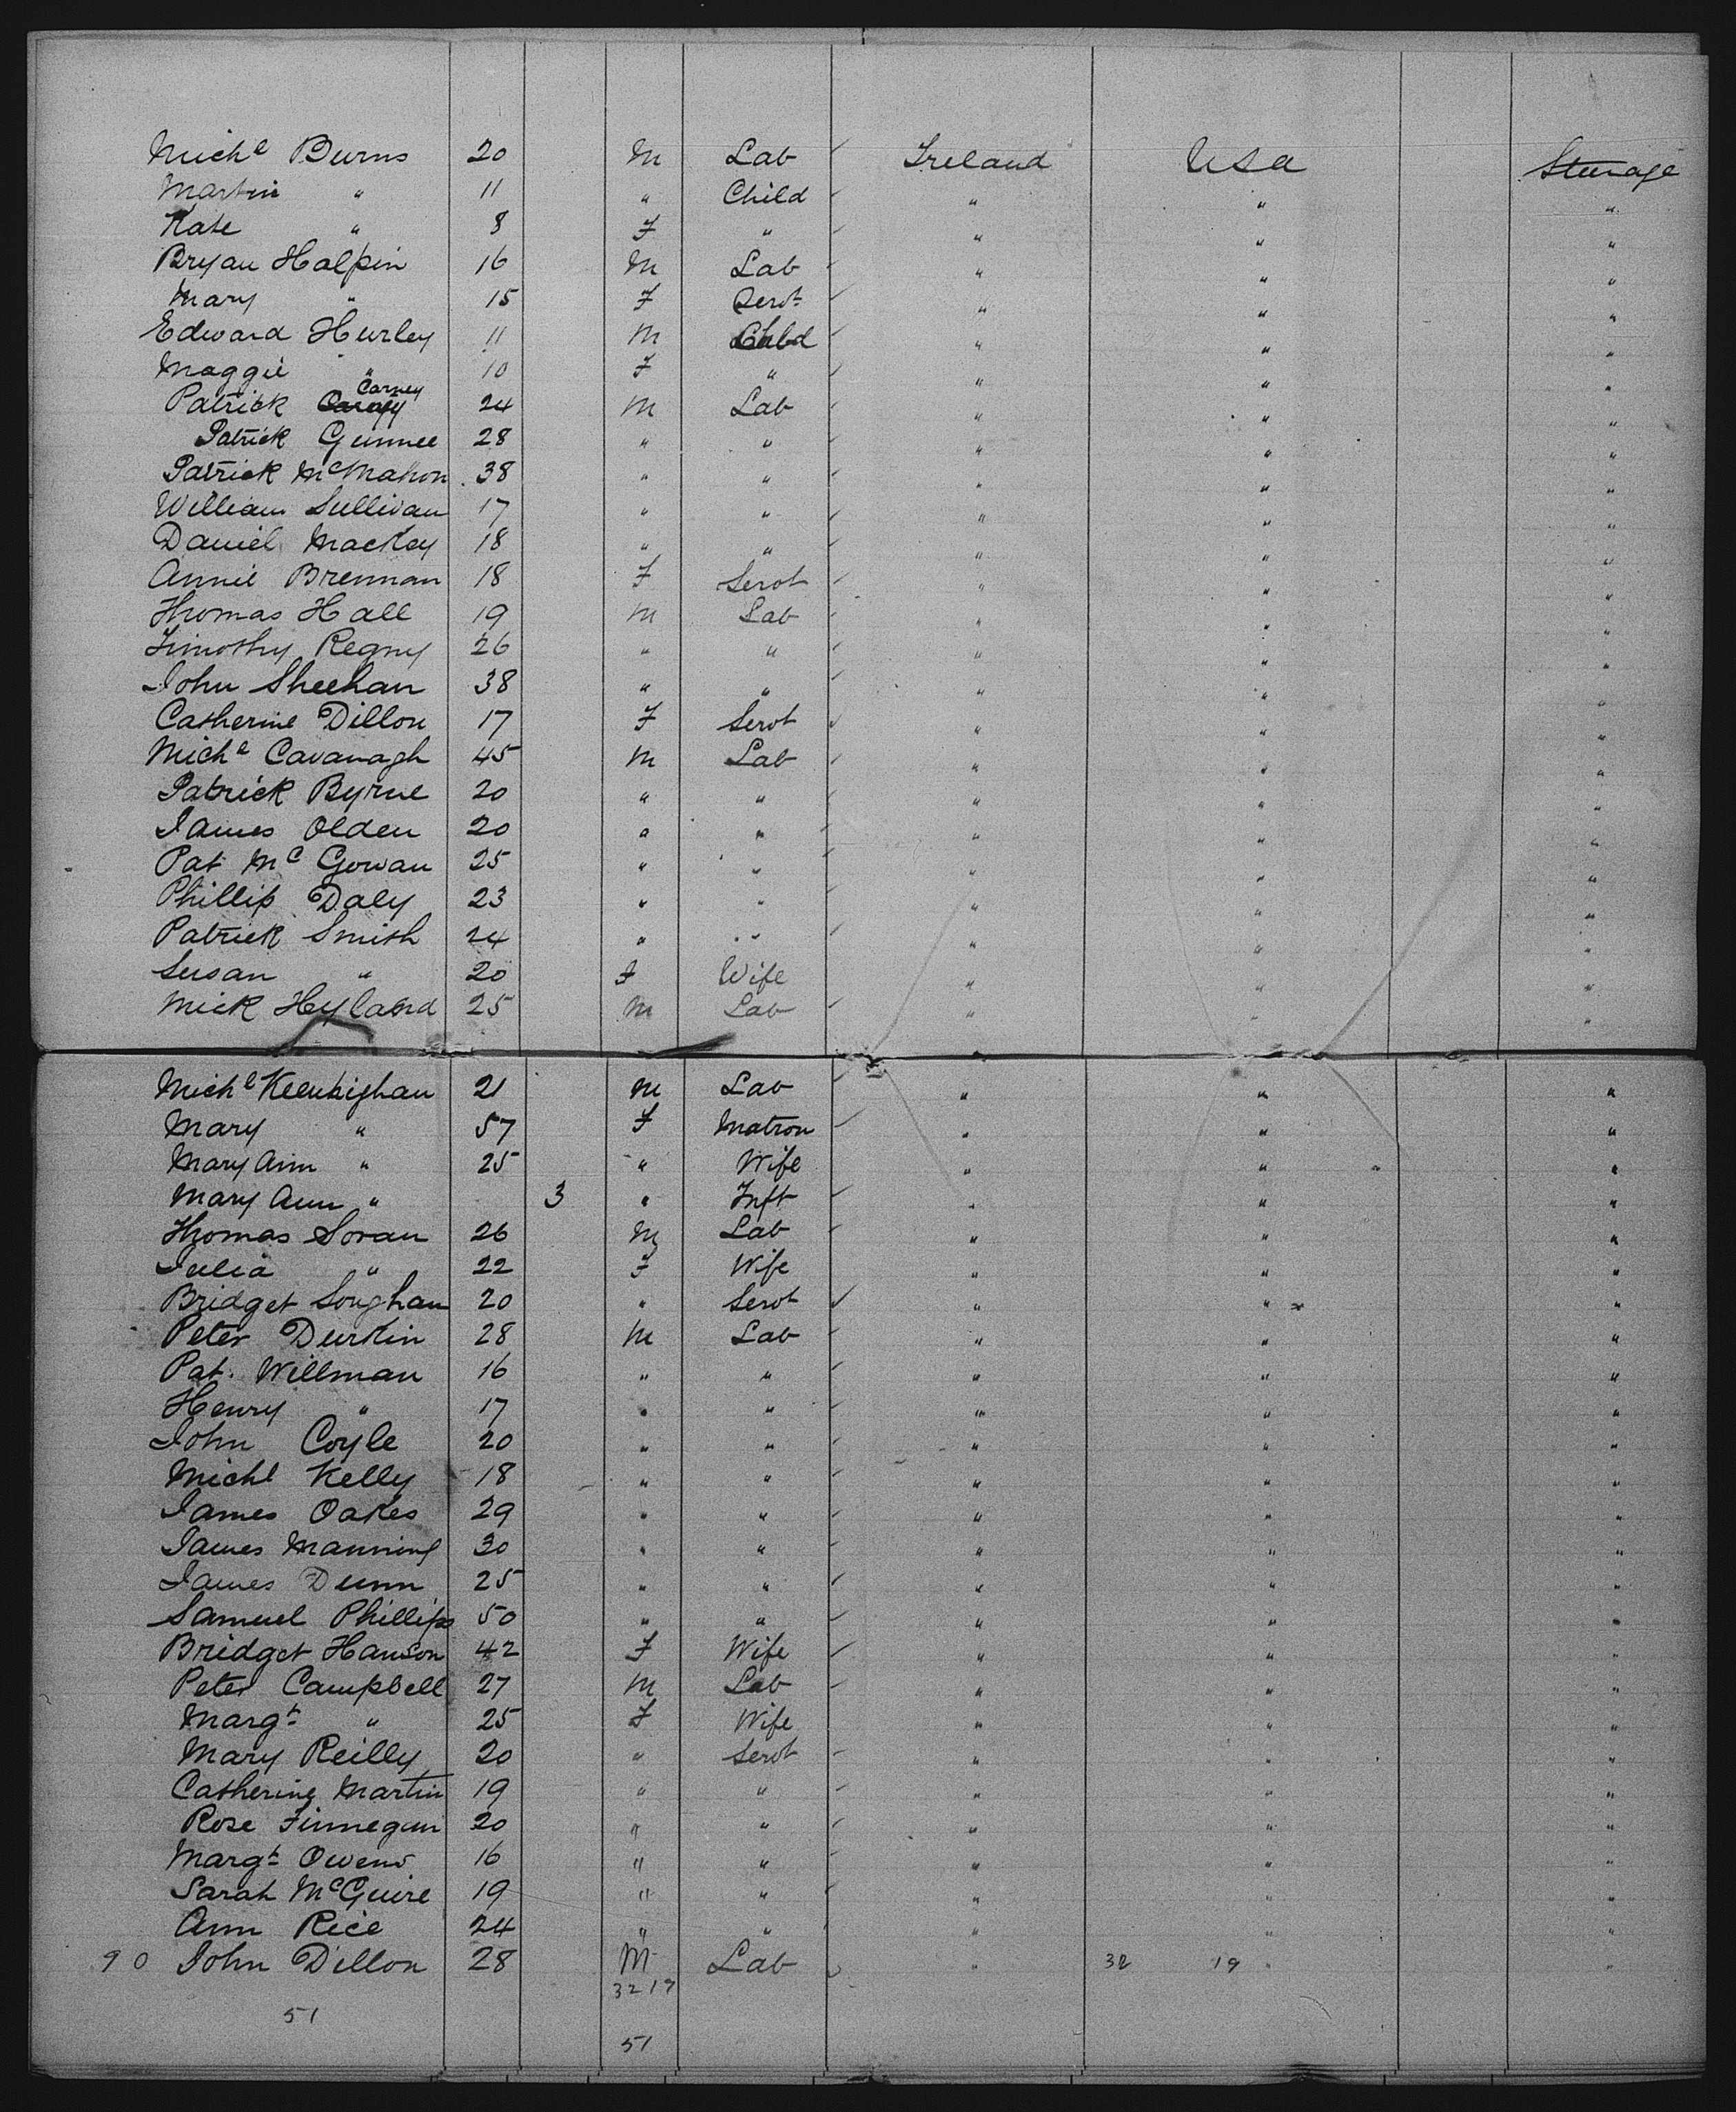 Mich^l Burns 20 M Lab Ireland USA Steerage
Martin " 11 " Child " " "
Kate " 8 F " " " "
Bryan Halpin 16 M Lab " " "
Mary " 15 F Servt " " "
Edward Hurley 11 M Child " " "
Maggie " 10 F " " " "
Patrick Carney 24 M Lab " " "
Patrick 28 " " " " "
Patrick McMahon 38 " " " " "
William Sullivan 17 " " " " "
Daniel Mackey 18 " " " " "
Annie Brennan 18 F Servt " " "
Thomas Hall 19 M Lab " " "
Timothy Regny 26 " " " " "
John Sheehan 38 " " " " "
Catherine Dillon 17 F Servt " " "
Mich^l Cavanagh 45 M Lab " " "
Patrick Byrne 20 " " " " "
James Olden 20 " " " " "
Pat McGowan 25 " " " " "
Phillip Daly 23 " " " " "
Patrick Smith 24 " " " " "
Susan " 20 F Wife " " "
Mick Hyland 25 M Lab " " "
Mich^l 21 M Lab " " "
Mary " 57 F Matron " " "
Mary Ann " 25 " Wife " " "
Mary Ann " 3 " Inft " " "
Thomas Soran 26 M Lab " " "
Julia " 22 F Wife " " "
Bridget Songhan 20 " Servt " " "
Peter Durkin 28 M Lab " " "
Pat. Willman 16 " " " " "
Henry " 17 " " " " "
John Coyle 20 " " " " "
Michl Kelly 18 " " " " "
James Oakes 29 " " " " "
James Manning 30 " " " " "
James Dunn 25 " " " " "
Samuel Phillips 50 " " " " "
Bridget Hanson 42 F Wife " " "
Peter Campbell 27 M Lab " " "
Marg^t " 25 F Wife " " "
Mary Reilly 20 " Servt " " "
Catherine Martin 19 " " " " "
Rose Finnegan 20 " " " " "
Marg^t Owens 16 " " " " "
Sarah McGuire 19 " " " " "
Ann Rice 24 " " " " "
90 John Dillon 28 M Lab " 32 19 " "
32 19
51
51